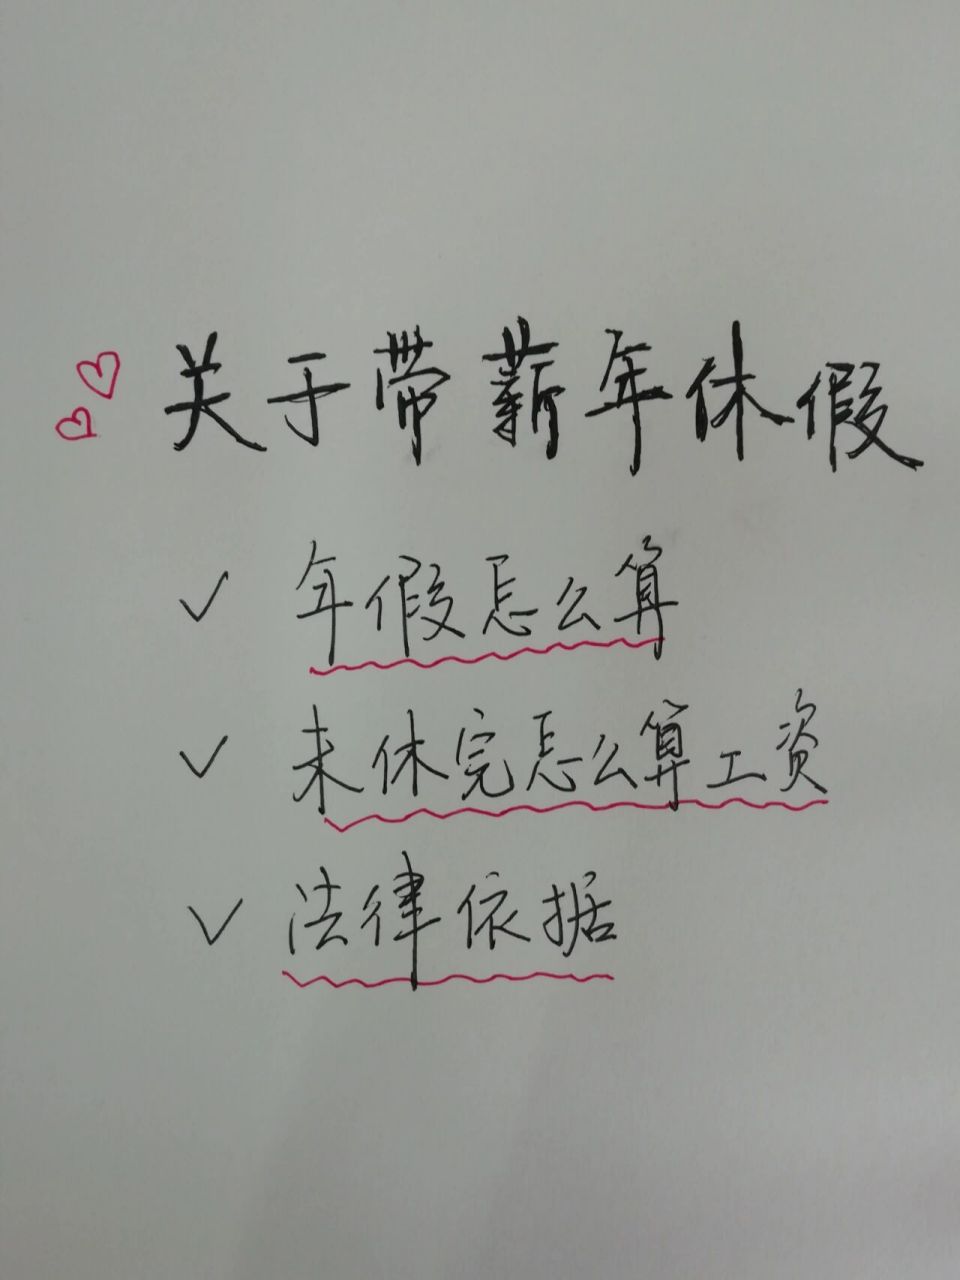 关于带薪年休假
✓ 年假怎么算
✓ 未休完怎么算工资
✓ 法律依据